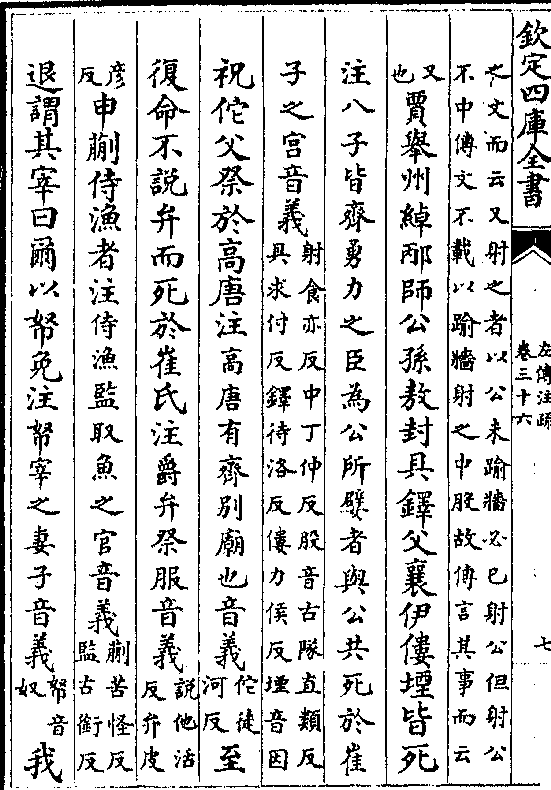 欽定四庫全書
左傳注疏
卷三十六
七
文而云又射之者以公未踰牆必已射公但射公
不中傳文不載以踰牆射之中股故傳言其事而云
又也賈舉州綽邴師公孫敖封具鐸父襄伊僂堙皆死
注八子皆齊勇力之臣為公所嬖者與公共死於崔
子之宮音義射食亦反中丁仲反股音古隊直類反
具求付反鐸待洛反僂力侯反堙音因
祝佗父祭於高唐注高唐有齊別廟也音義佗徒河反至
復命不說弁而死於崔氏注爵弁祭服音義說他活反弁皮
彥反申蒯侍漁者注侍漁監取魚之官音義蒯苦怪反監古銜反
退謂其宰曰爾以帑免注帑宰之妻子音義帑音奴我